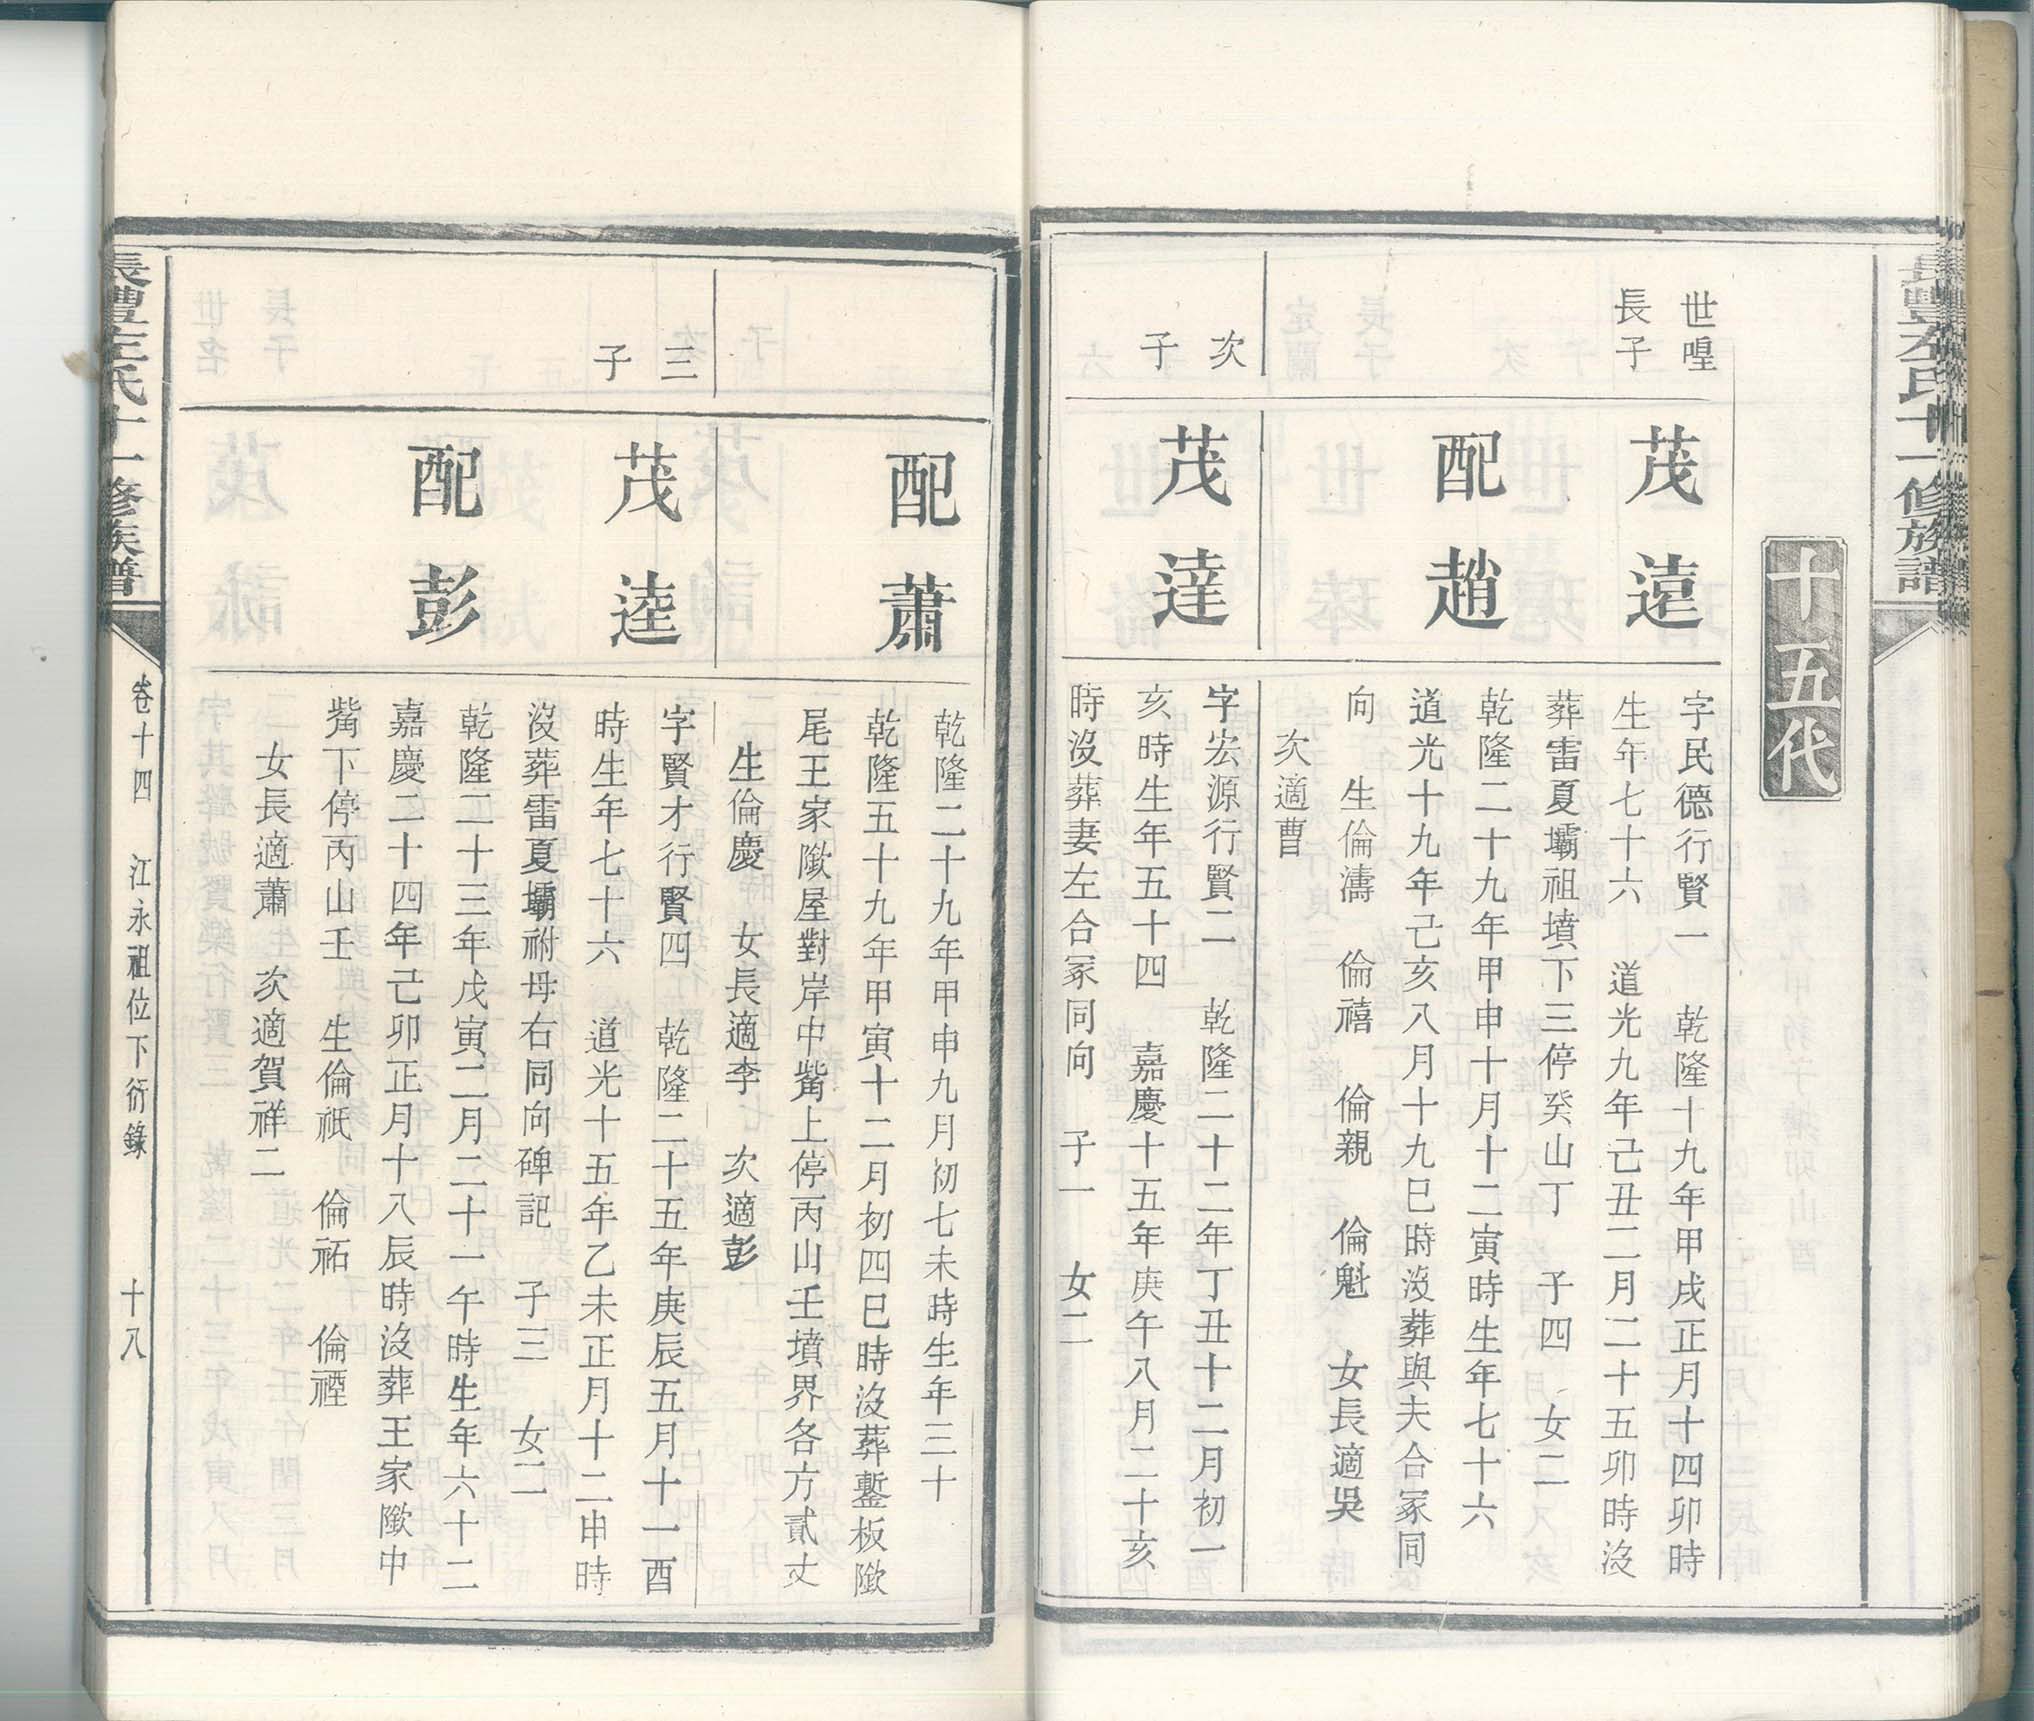 長豐左氏十一修族譜
十五代
世喤
長子
茂遠
字民德行賢一 乾隆十九年甲戌正月十四卯時
生年七十六 道光九年己丑二月二十五卯時沒
葬雷夏壩祖墳下三停癸山丁 子四 女二
配趙
乾隆二十九年甲申十月十二寅時生年七十六
道光十九年己亥八月十九巳時沒葬與夫合冢同
向 生倫濤 倫禧 倫親 倫魁 女長適吳
次適曹
次
子
茂達
字宏源行賢二 乾隆二十二年丁丑十二月初一
亥時生年五十四 嘉慶十五年庚午八月二十亥
時沒葬妻左合冢同向 子一 女二
配蕭
乾隆二十九年甲申九月初七未時生年三十
乾隆五十九年甲寅十二月初四巳時沒葬鏨板歟
尾王家歟屋對岸中觜上停丙山壬墳界各方貳丈
生倫慶 女長適李 次適彭
三
子
茂逵
字賢才行賢四 乾隆二十五年庚辰五月十一酉
時生年七十六 道光十五年乙未正月十二申時
沒葬雷夏壩祔母右同向碑記 子三 女二
配彭
乾隆二十三年戊寅二月二十一午時生年六十二
嘉慶二十四年己卯正月十八辰時沒葬王家歟中
觜下停丙山壬 生倫祇 倫祏 倫禋
女長適蕭 次適賀祥二
長豐左氏十一修族譜
卷十四 江永祖位下衍錄 十八